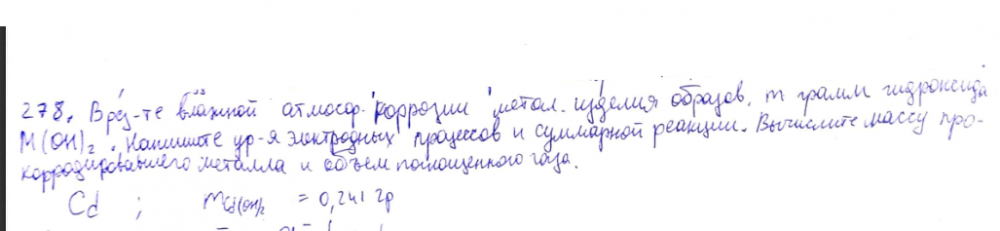 278. В рез-те влажной атмосф. коррозии метал. изделия образов. m грамм гидроксида
M(OH)₂. Напишите ур-я электродных процессов и суммарной реакции. Вычислите массу про-
корродировавшего металла и объём поглощенного газа.
Cd ; mCd(OH)₂ = 0,241 гр